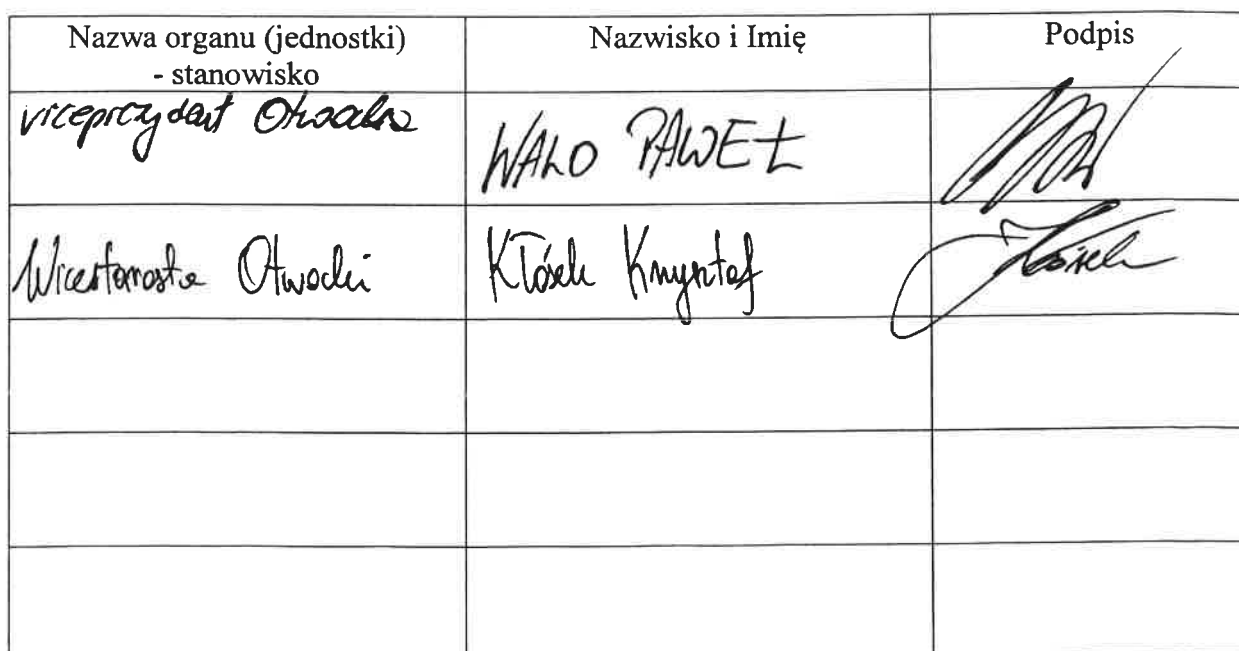 Nazwa organu (jednostki)
- stanowisko
Nazwisko i Imię
Podpis
viceprezydent Otwocka
WALO PAWEŁ
Wicestarosta Otwocki
Kłósek Krzysztof